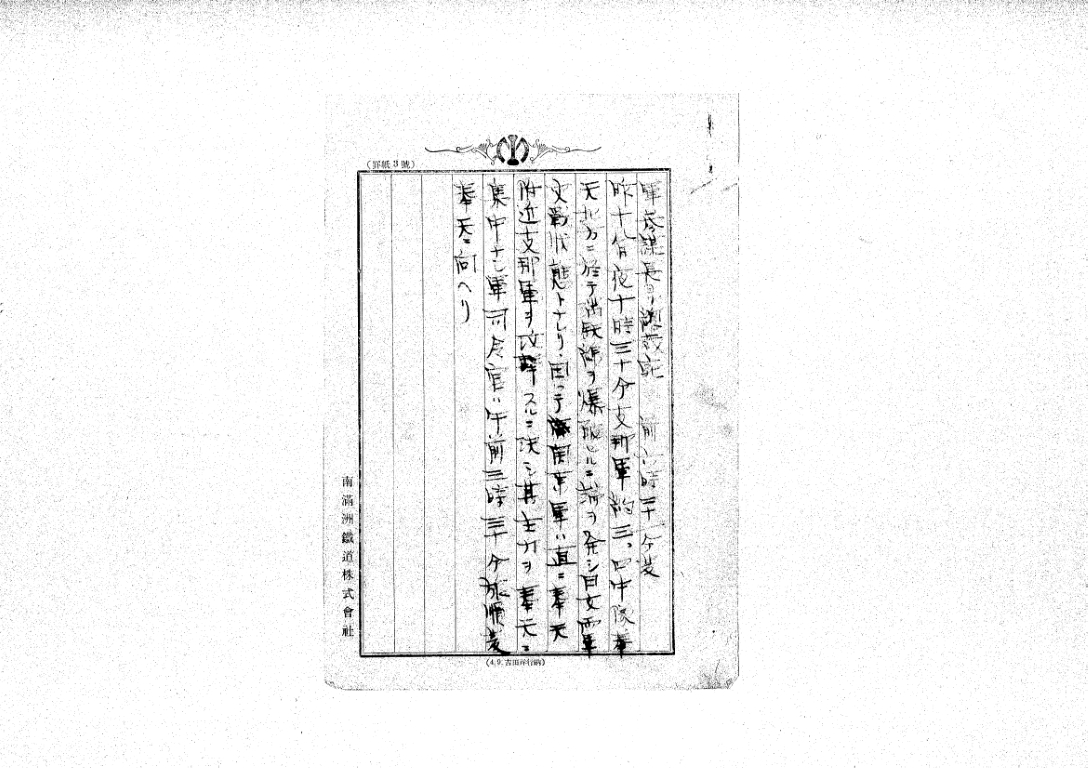 (罫紙3號)
軍參謀長ヨリ 前六時三十一分発
昨十八日夜十時三十分支那軍約三、四中隊奉
天北方ニ於テ満鉄線ヲ爆破セルニ端ヲ発シ日支両軍
交戦状態トナレリ、因テ関東軍ハ直ニ奉天
附近支那軍ヲ攻撃スルニ決シ其主力ヲ奉天ニ
集中ナシ軍司令官ハ午前三時三十分旅順発
奉天ニ向ヘリ
南滿洲鐵道株式會社
(4.9. 吉田洋行納)